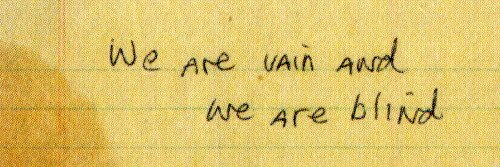 We are vain and
we are blind